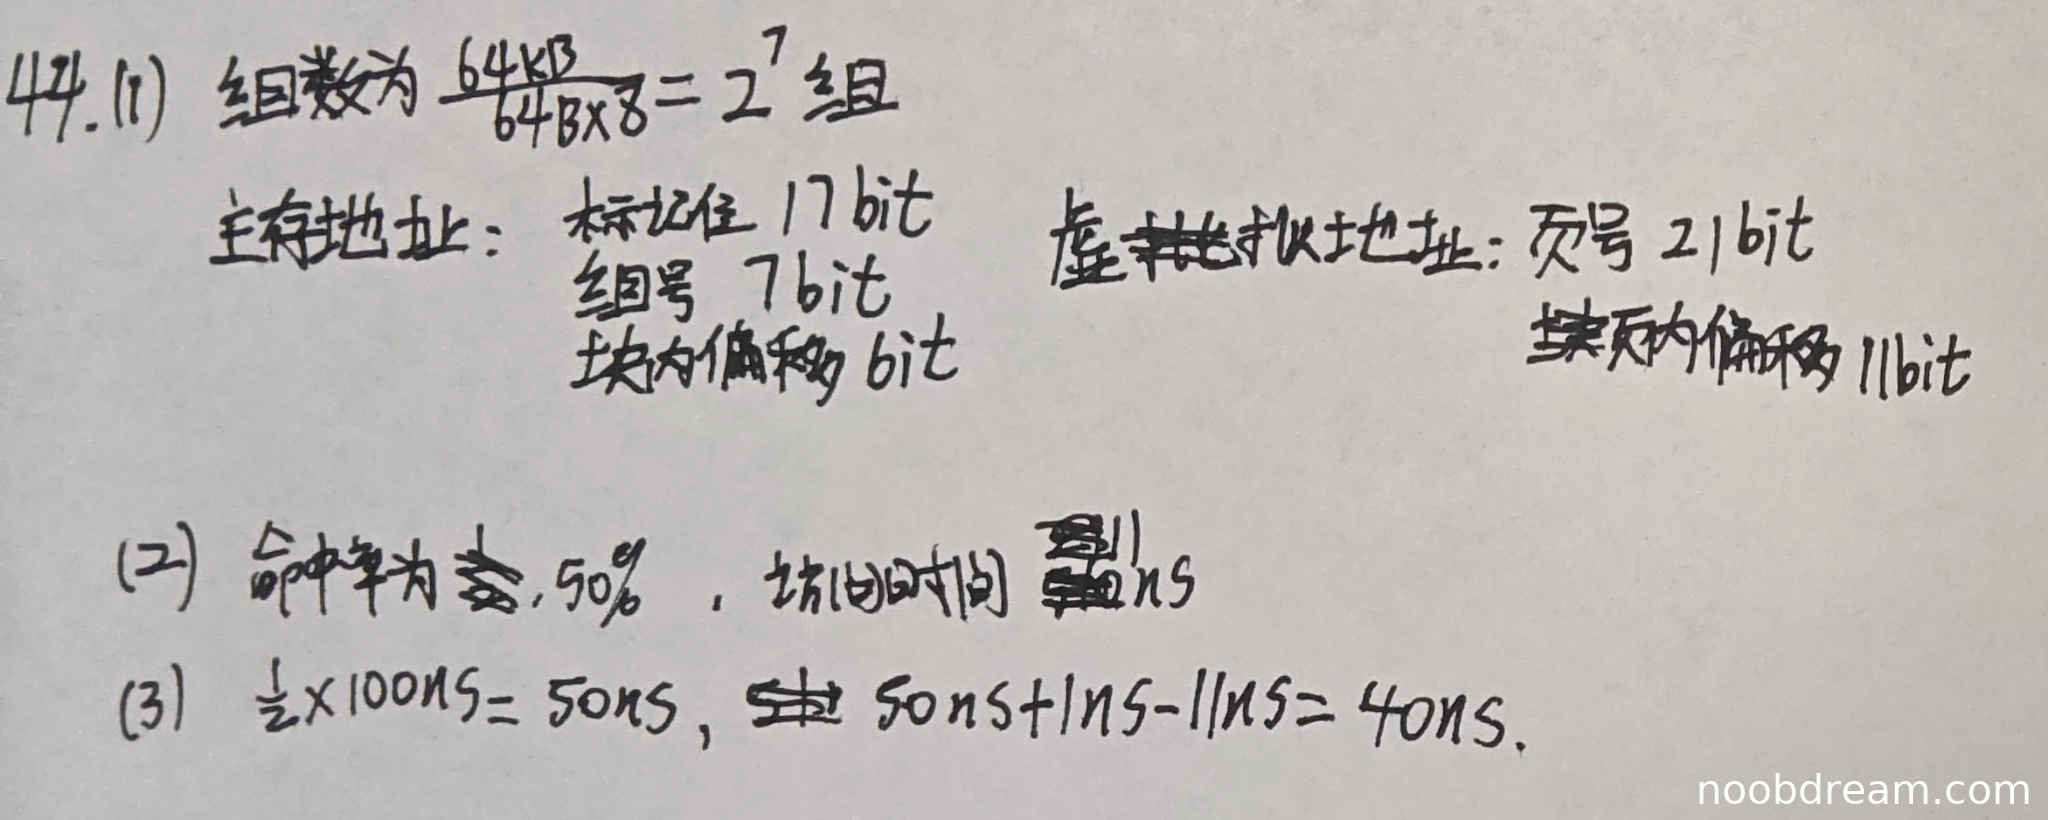 44.(1) 组数为 64KB/64B×8 = 2^7 组
主存地址: 标记位 17bit
组号 7bit
块内偏移 6bit
虚拟地址: 页号 21bit
页内偏移 11bit
(2) 命中率为 50%. 访问时间 11ns
(3) 1/2×100ns = 50ns, 50ns+1ns-11ns = 40ns.
noobdream.com